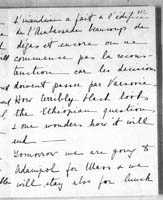 l'incendie a fait à l'édifice
de l'Ambassade beaucoup de
dégats et encore on ne
commence pas la recons-
truction car les décisions
doivent passer par Varsovie.
How terribly black looks
the Ethiopian question
& one wonders how it will
end —
Tomorrow we are going to
Adampol for Mass & we
will stay also for lunch